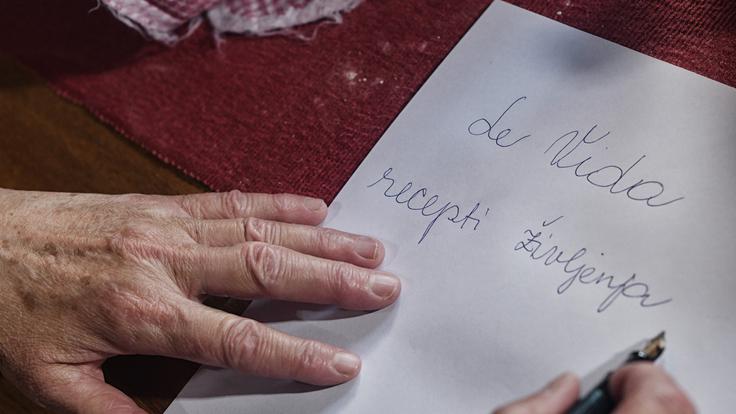 de Vida
recepti življenja